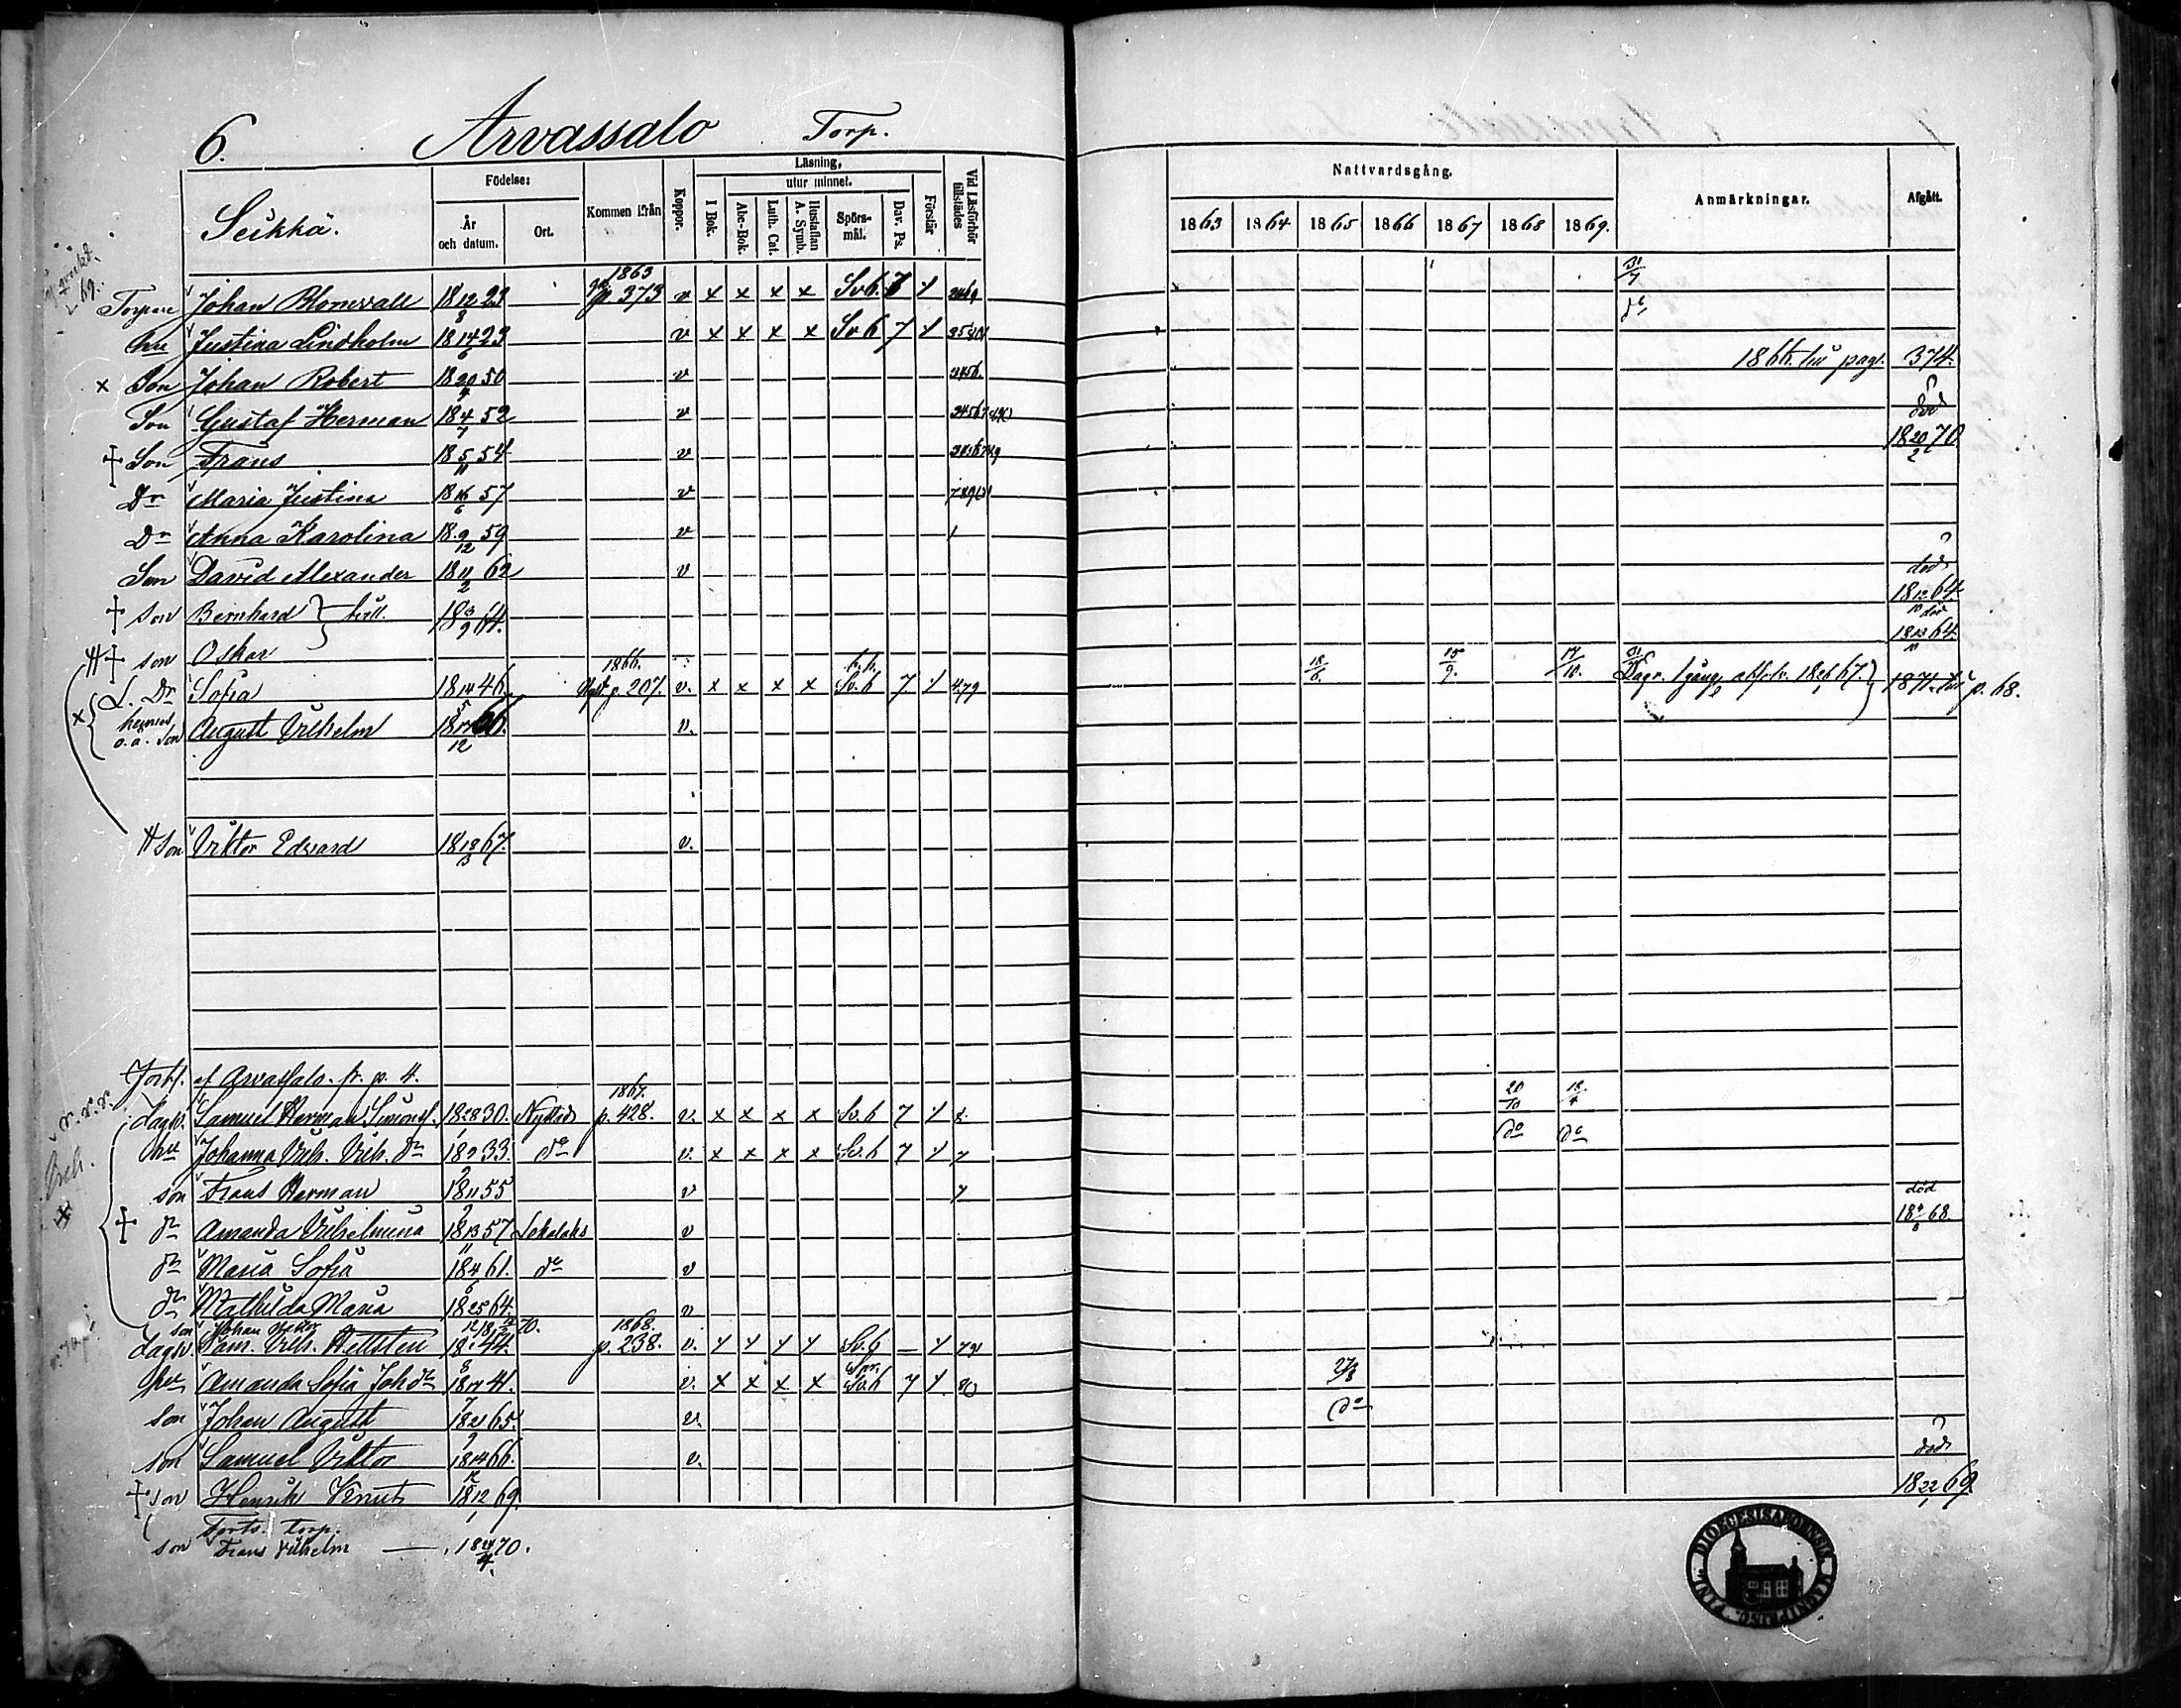 6. Arvassalo Torp.
Seikkä.
Födelse: År och datum. Ort. Kommen ifrån Koppor. Läsning, I Bok. utur minnet. Abc-Bok. Luth. Cat. Hustaflan A. Symb. Spörsmål. Dav. Ps. Förstår Vid Läsförhör tillstädes
Nattvardsgång. 1863 1864 1865 1866 1867 1868 1869. Anmärkningar. Afgått.
1863
Torpare Johan Blomvall 18 12/8 23 p 373 v x x x x Sv 6. 7 31/7
hu Justina Lindholm 18 14/6 23 v x x x x Sv 6 7 do
x Son Johan Robert 18 20/4 50 v 1866 till pag. 374.
Son Gustaf Herman 18 4/7 52 v död
+ Son Frans 18 5/11 54 v 18 20/2 70
Dr Maria Justina 18 16/6 57 v
Dr Anna Karolina 18 9/12 59 v
Son David Alexander 18 11/2 62 v död
+ son Bernhard } tvill. 18 3/9 64. 18 12/10 64 död
+ son Oskar 18 13/10 64
1866.
L. Dr Sofia 18 14/5 46. p. 207. v. x x x x Sv. 6 7 479 18/6. 15/9. 17/10. 1871 till p. 68.
hennes o. ä. son August Vilhelm 18 17/12 66. v.
son Viktor Edvard 18 18/3 67. v.
Forts. af Arvassalo. fr. p. 4.
1867.
dagk. Samuel Herman Simonss. 18 28/1 30. Nystad p. 428. v. x x x x Sv. 6 7 20/10 18/4
hu Johanna Vilh. Vilh. dr 18 2/2 33. do v. x x x x Sv. 6 7 7 do do
son Frans Herman 18 11/2 55 v 7
+ dr Amanda Vilhelmina 18 13/11 57 Lokalaks v död 18 4/6 68.
dr Maria Sofia 18 4/6 61. do v
dr Mathilda Maria 18 25/12 64. v
son Johan Viktor 70. 1868.
dagk. Sam. Vilh. Hellsten 44. p. 238. v. Sv. 6 —
hu Amanda Sofia Joh dr 18 17/7 41. v. x x x x Sv. 6 7 27/8
son Johan August 18 21/9 65. v. do
son Samuel Viktor 18 14/12 66. v. död
+ son Henrik Knut 18 12/1 69. 18 22/1 69
Forts. torp.
son Frans Vilhelm — 18 24/4 70.
DIOECESIS ABOENSIS MAGNI PRINC. FINL.